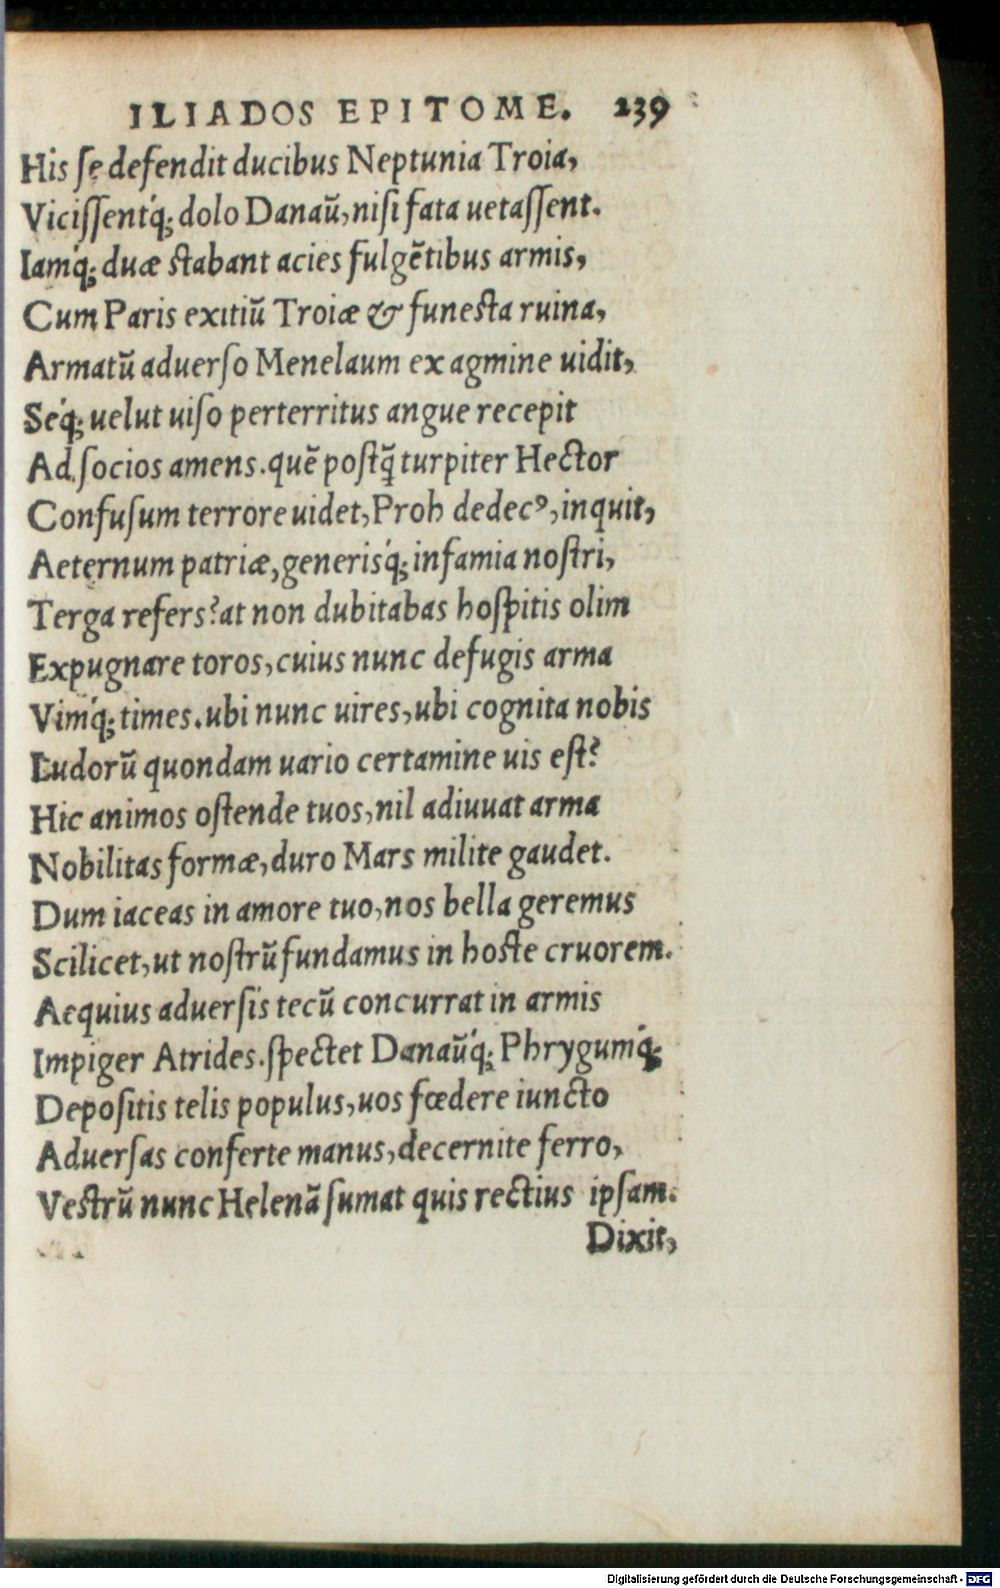 ILIADOS EPITOME. 239
His ſe defendit ducibus Neptunia Troia,
Viciſſentq́; dolo Danaũ, niſi fata uetaſſent.
Iamq́; duæ ſtabant acies fulgẽtibus armis,
Cum Paris exitiũ Troiæ & funeſta ruina,
Armatũ aduerſo Menelaum ex agmine uidit,
Seq́; uelut uiſo perterritus angue recepit
Ad ſocios amens. quẽ poſtq̃ turpiter Hector
Confuſum terrore uidet, Proh dedecꝰ, inquit,
Aeternum patriæ, generisq́; infamia noſtri,
Terga refers? at non dubitabas hoſpitis olim
Expugnare toros, cuius nunc defugis arma
Vimq́; times. ubi nunc uires, ubi cognita nobis
Ludorũ quondam uario certamine uis eſt?
Hic animos oſtende tuos, nil adiuuat arma
Nobilitas formæ, duro Mars milite gaudet.
Dum iaceas in amore tuo, nos bella geremus
Scilicet, ut noſtrũ fundamus in hoſte cruorem.
Aequius aduerſis tecũ concurrat in armis
Impiger Atrides. ſpectet Danaũq́; Phrygumq́;
Depoſitis telis populus, uos fœdere iuncto
Aduerſas conferte manus, decernite ferro,
Veſtrũ nunc Helenã ſumat quis rectius ipſam.
Dixit,
Digitalisierung gefördert durch die Deutsche Forschungsgemeinschaft - DFG